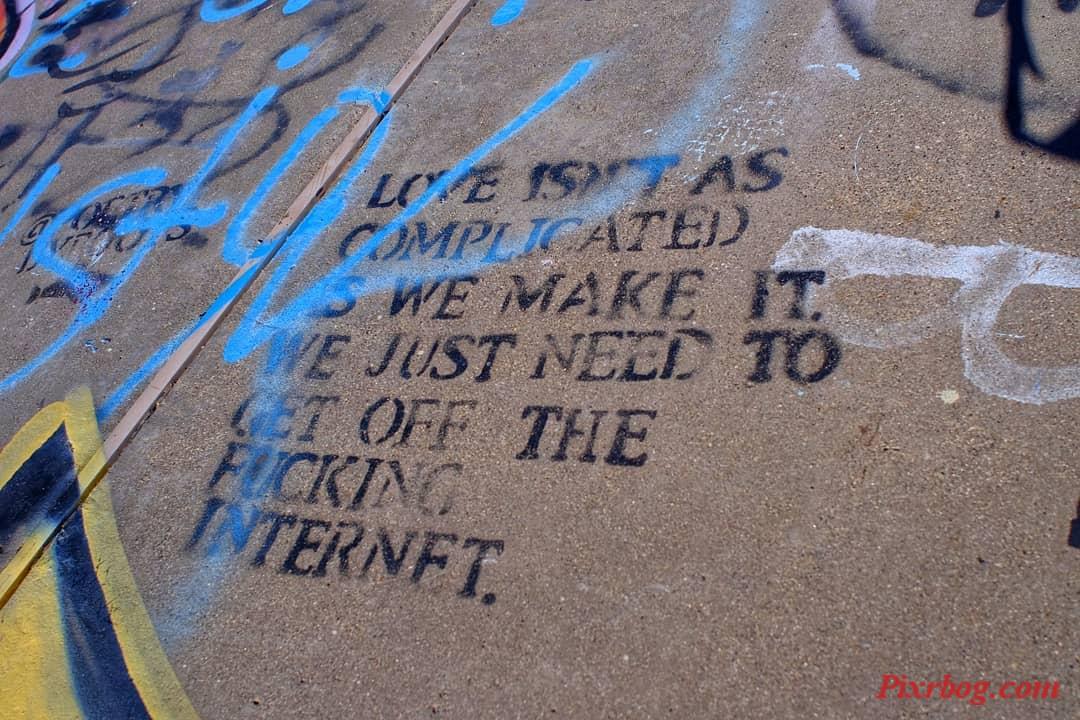 LOVE ISN'T AS
COMPLICATED
AS WE MAKE IT.
WE JUST NEED TO
GET OFF THE
FUCKING
INTERNET.
Pixrbog.com